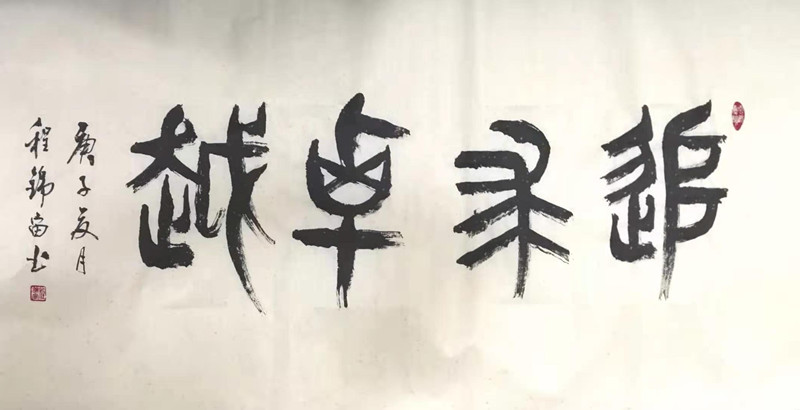 追求卓越
庚子夏月
程锦富书